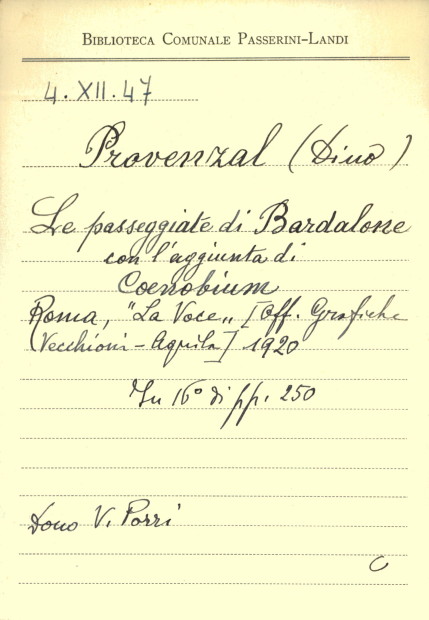 Biblioteca Comunale Passerini-Landi
4.XII.47
Provenzal (Dino)
Le passeggiate di Bardalone
con l'aggiunta di
Coenobium
Roma, "La Voce„ [Off. Grafiche
Vecchioni - Aquila] 1920
In 16° di pp. 250
Dono V. Porri
C